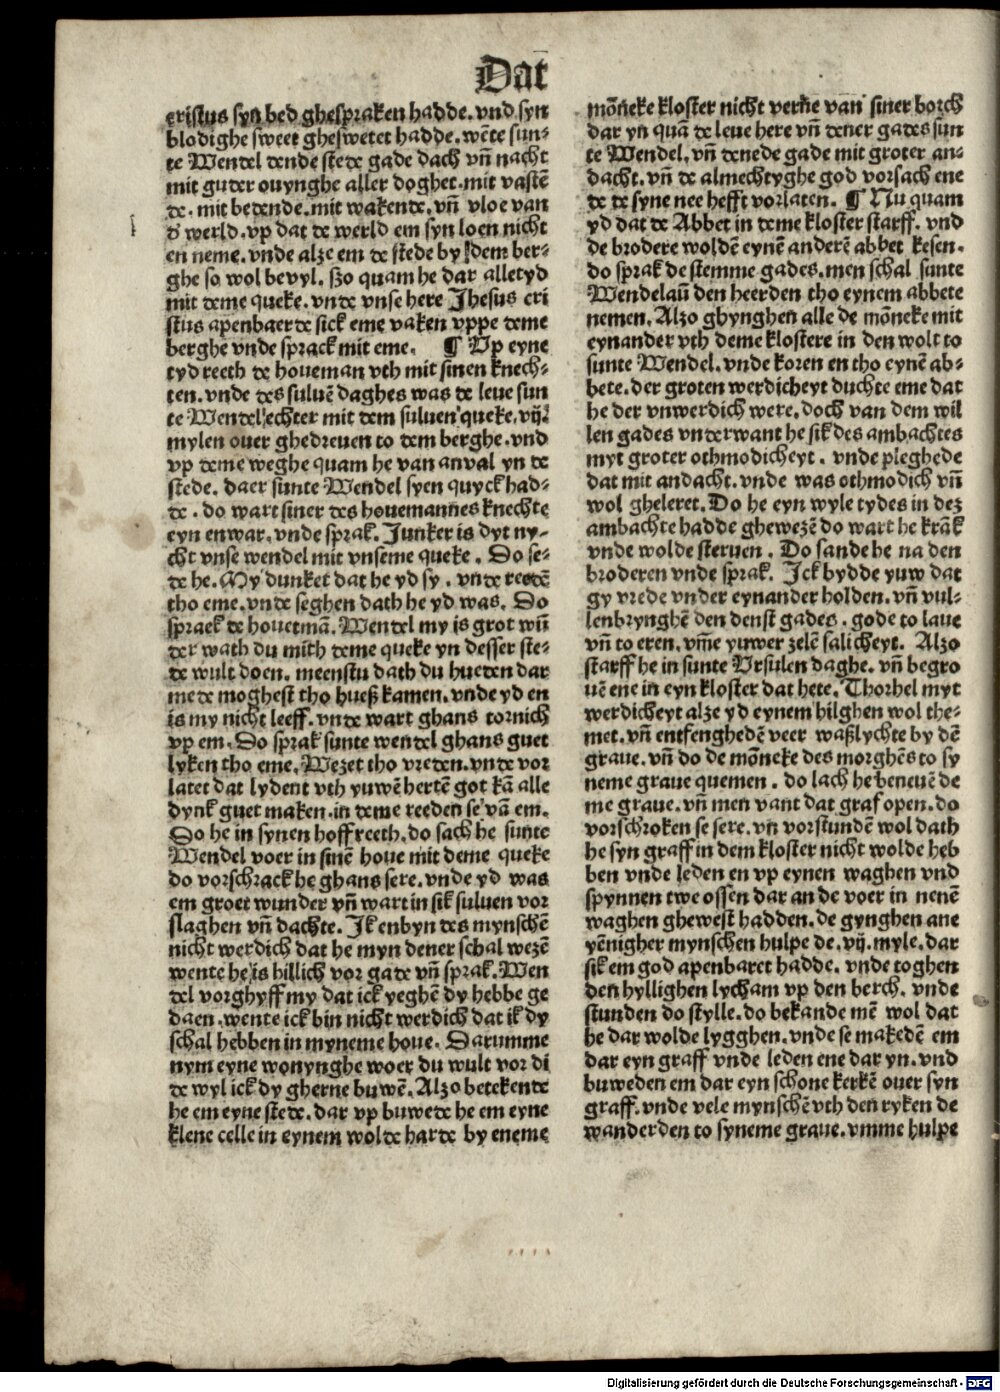 Dat
cristus syn bed ghespraken hadde. vnd syn
blodighe sweet gheswetet hadde. wēte sun-
te Wendel dende stede gade dach vn̄ nacht
mit guder ouynghe aller doghet. mit vastē
de. mit bedende. mit wakende. vn̄ vloe van
d' werld. vp dat de werld em syn loen nicht
en neme. vnde alze em de stede by dem ber-
ghe so wol bevyl. szo quam he dar alletyd
mit deme queke. vnde vnse here Jhesus cri
stus apenbaerde sick eme vaken vppe deme
berghe vnde sprack mit eme. ¶ Vp eyne
tyd reeth de houeman vth mit sinen knech-
ten. vnde des suluē daghes was de leue sun
te Wendel echter mit dem suluen queke. vij.
mylen ouer ghedreuen to dem berghe. vnd
vp deme weghe quam he van anval yn de
stede. daer sunte Wendel syen quyck had-
de. do wart siner des houemannes knechte
eyn enwar. vnde sprak. Junker is dyt ny-
cht vnse wendel mit vnseme queke. Do se-
de he. My dunket dat he yd sy. vnde reedē
tho eme. vnde seghen dath he yd was. Do
spraek de houetmā. Wendel my is grot wū
der wath du mith deme queke yn desser ste-
de wult doen. meenstu dath du hueden dar
mede moghest tho hueß kamen. vnde yd en
is my nicht leeff. vnde wart ghans tornich
vp em. Do sprak sunte wendel ghans guet
lyken tho eme. Wezet tho vreden. vnde vor
latet dat lydent vth yuwē herten got kā alle
dynk guet maken. in deme reeden se vā em.
Do he in synen hoff reeth. do sach he sunte
Wendel voer in sinē houe mit deme queke
do vorschrack he ghans sere. vnde yd was
em groet wunder vn̄ wart in sik suluen vor
slaghen vn̄ dachte. Ik enbyn des mynschē
nicht werdich dat he myn dener schal wezē
wente he is hillich vor gade vn̄ sprak. Wen
del vorghyff my dat ick yeghē dy hebbe ge
daen. wente ick bin nicht werdich dat ik dy
schal hebben in myneme houe. Darumme
nym eyne wonynghe woer du wult vor di
de wyl ick dy gherne buwē. Alzo betekende
he em eyne stede. dar vp buwede he em eyne
klene celle in eynem wolde harde by eneme
mōneke kloster nicht verne van siner borch
dar yn quā de leue here vn̄ dener gades sun
te Wendel. vn̄ denede gade mit groter an-
dacht. vn̄ de almechtyghe god vorsach ene
de de syne nee hefft vorlaten. ¶ Nu quam
yd dat de Abbet in deme kloster starff. vnd
de brodere woldē eynē anderē abbet kesen.
do sprak de stemme gades. men schal sunte
Wendelaū den heerden tho eynem abbete
nemen. Alzo ghynghen alle de mōneke mit
eynander vth deme klostere in den wolt to
sunte Wendel. vnde koren en tho eynē ab-
bete. der groten werdicheyt duchte eme dat
he der vnwerdich were. doch van dem wil
len gades vnderwant he sik des ambachtes
myt groter othmodicheyt. vnde pleghede
dat mit andacht. vnde was othmodich vn̄
wol gheleret. Do he eyn wyle tydes in dez
ambachte hadde ghewezē do wart he krāk
vnde wolde steruen. Do sande he na den
broderen vnde sprak. Ick bydde yuw dat
gy vrede vnder eynander holden. vn̄ vul-
lenbrynghē den denst gades. gode to laue
vn̄ to eren. vm̄e yuwer zelē salicheyt. Alzo
starff he in sunte Vrsulen daghe. vn̄ begro
uē ene in eyn kloster dat hete. Thorhel myt
werdicheyt alze yd eynem hilghen wol the-
met. vn̄ entfenghedē veer waßlychte by dē
graue. vn̄ do de mōneke des morghēs to sy
neme graue quemen. do lach he beneuē de
me graue. vn̄ men vant dat graf open. do
vorschroken se sere. vn vorstundē wol dath
he syn graff in dem kloster nicht wolde heb
ben vnde leden en vp eynen waghen vnd
spynnen twe ossen dar an de voer in nenē
waghen ghewest hadden. de gynghen ane
yēnigher mynschen hulpe de. vij. myle. dar
sik em god apenbaret hadde. vnde toghen
den hyllighen lycham vp den berch. vnde
stunden do stylle. do bekande mē wol dat
he dar wolde lygghen. vnde se makedē em
dar eyn graff vnde leden ene dar yn. vnd
buweden em dar eyn schone kerkē ouer syn
graff. vnde vele mynschē vth den ryken de
wanderden to syneme graue. vmme hulpe
Digitalisierung gefördert durch die Deutsche Forschungsgemeinschaft - DFG